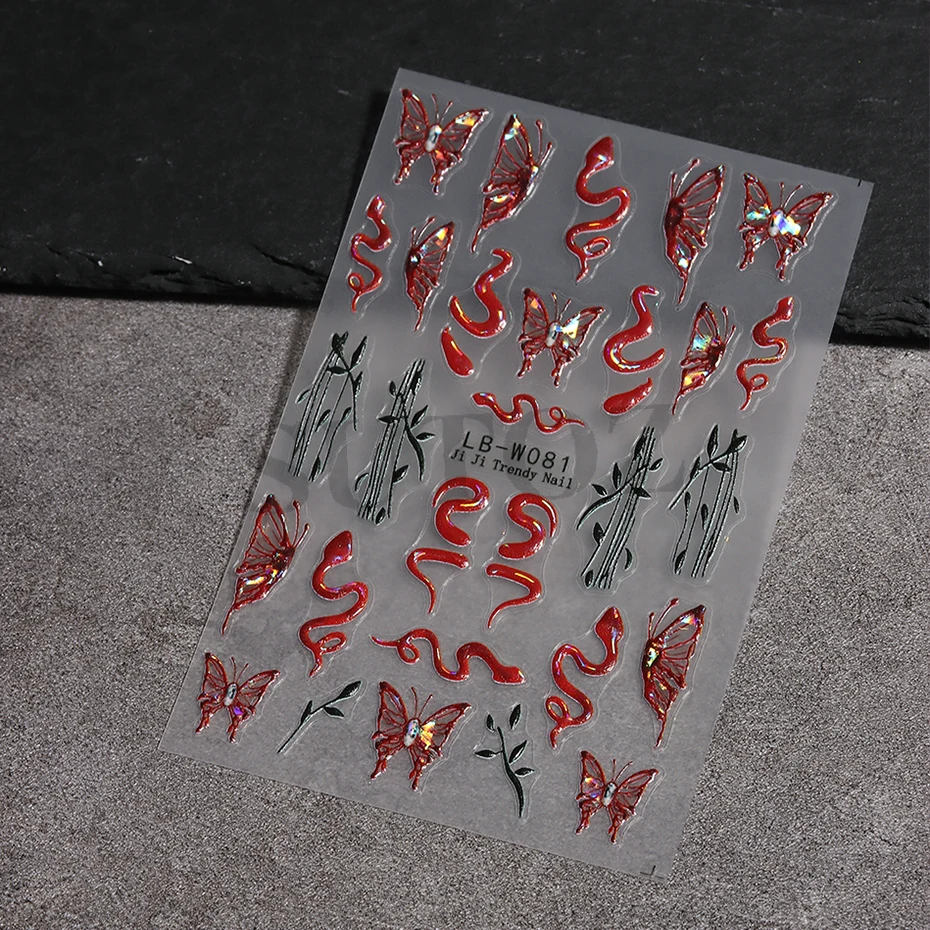 LB-W081
Ji Ji Trendy Nail